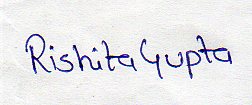 Rishita Gupta